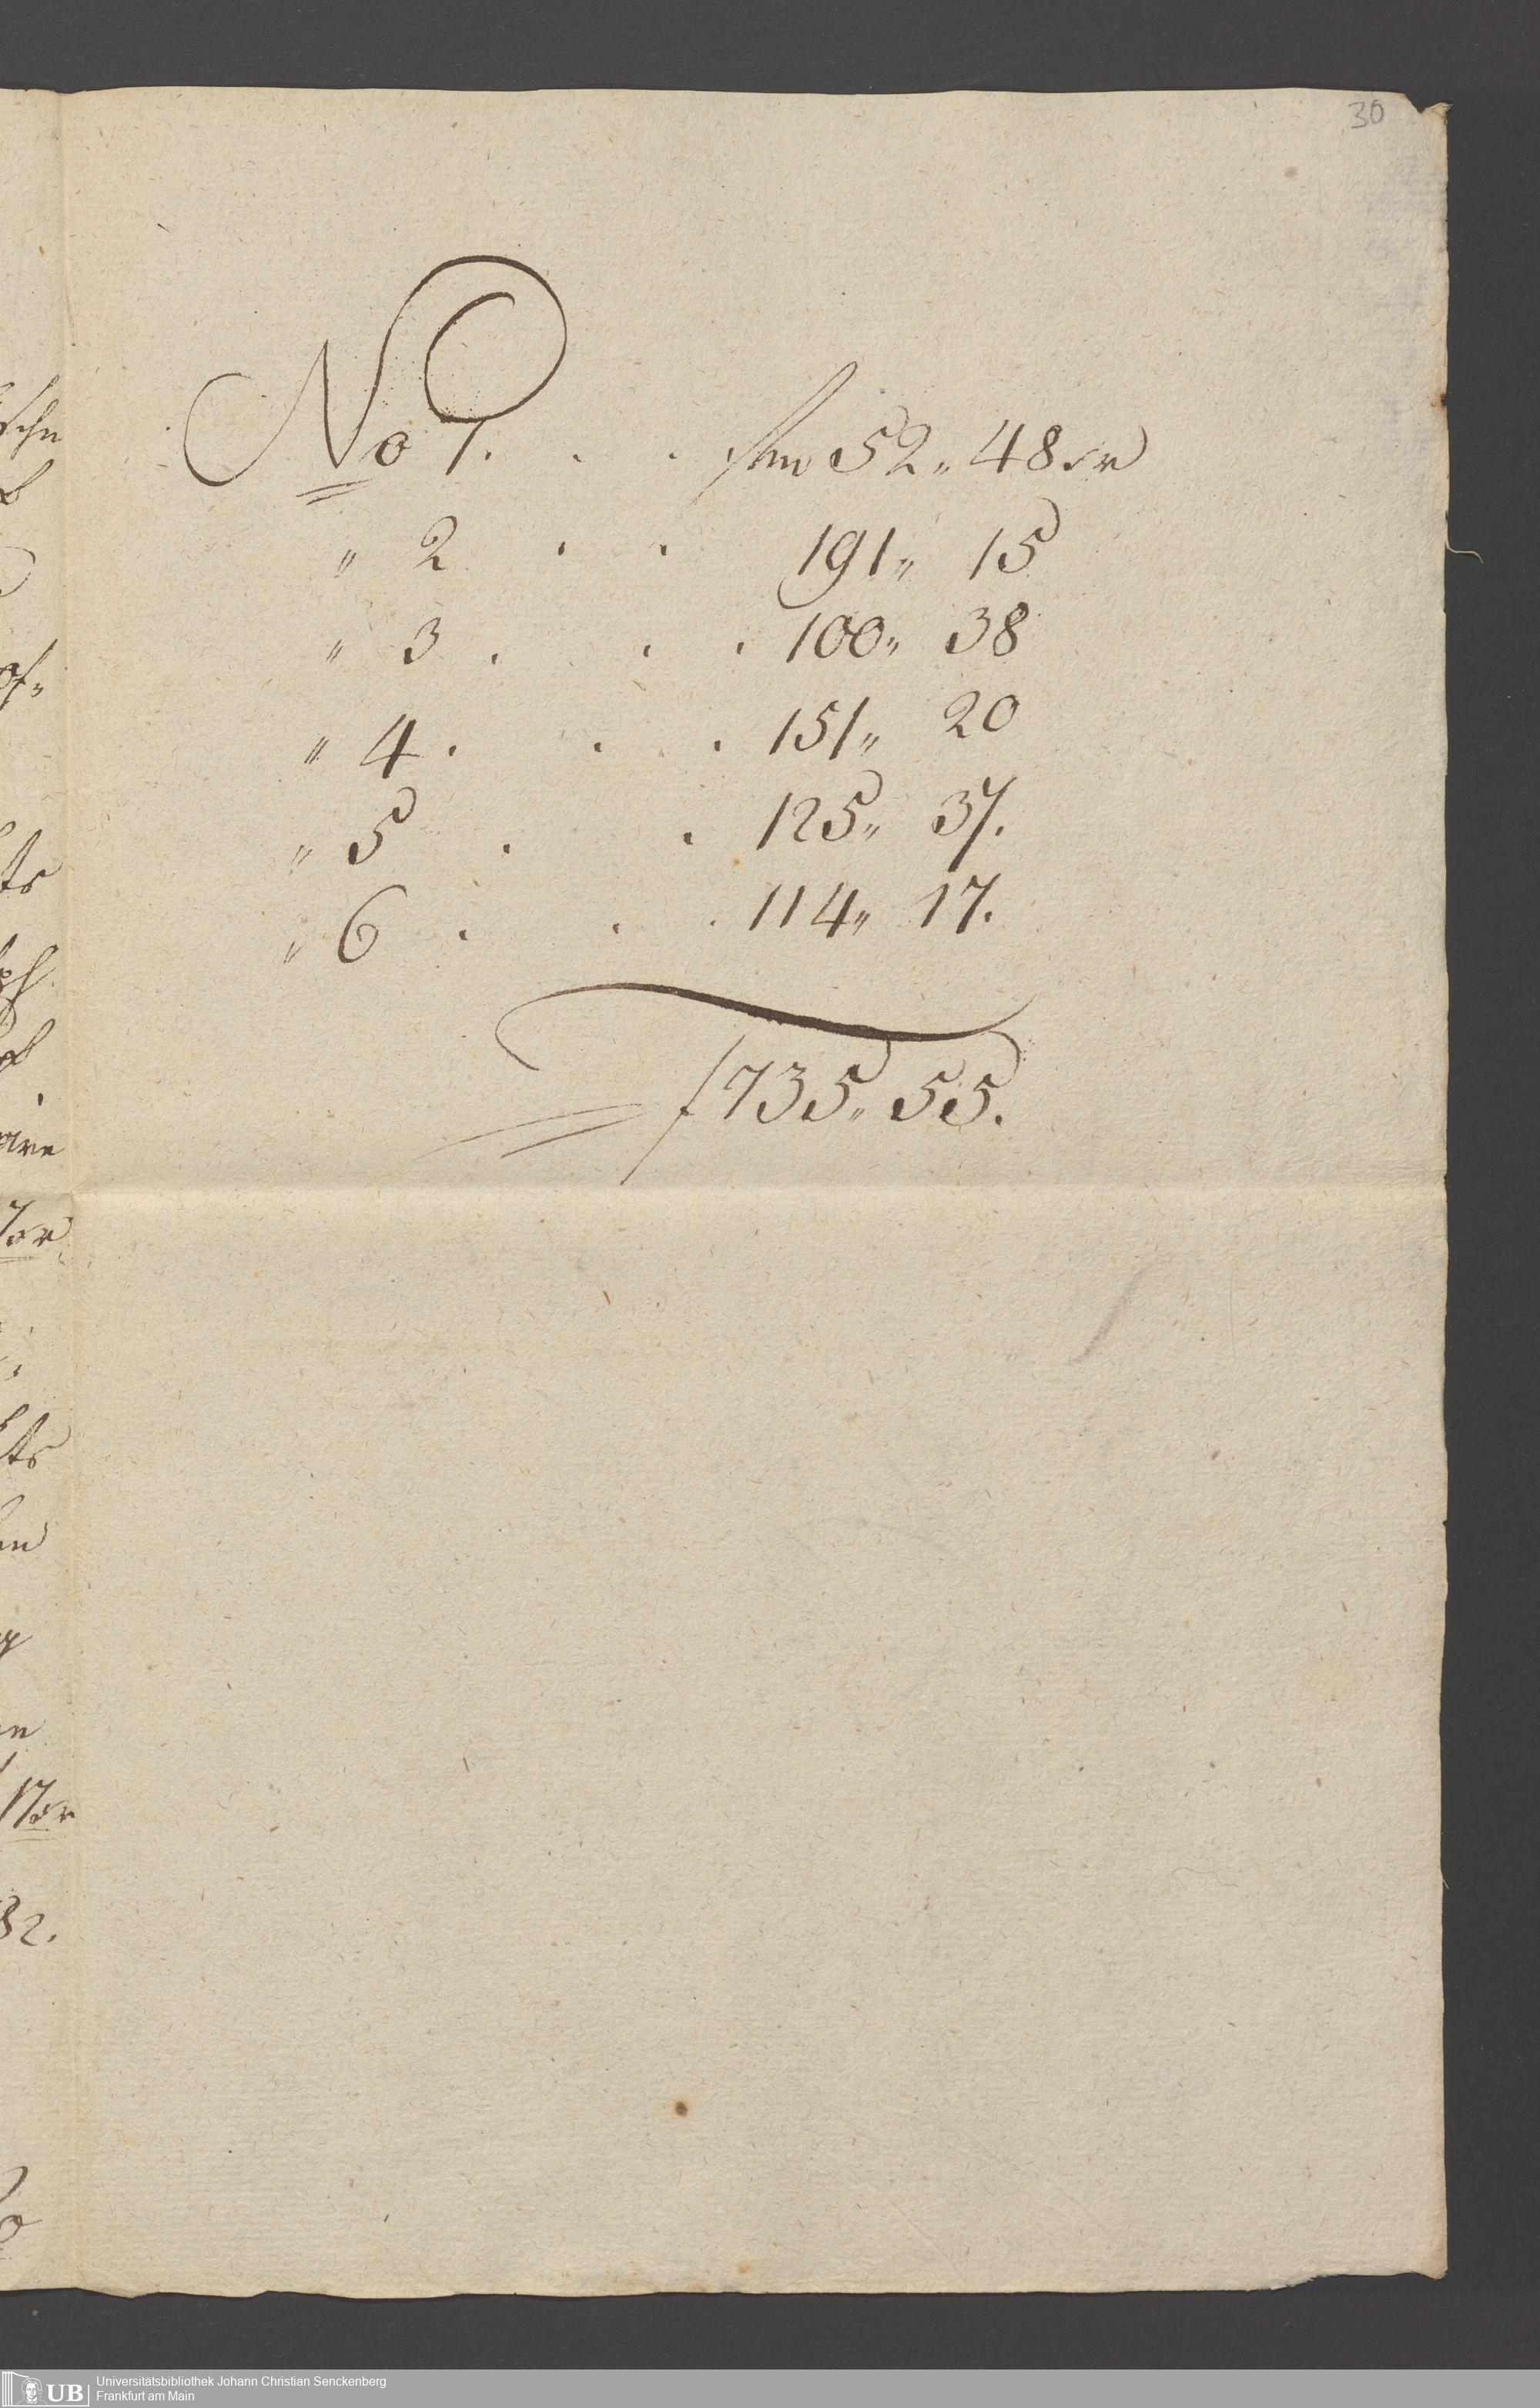 30
No 1. . . fl 52,, 48 xr
,, 2 . . 191,, 15
,, 3 . . . 100,, 38
,, 4 . . . 151,, 20
,, 5 . . 125,, 37.
,, 6 . . . 114,, 17.
f 735,, 55.
schn
of,,
ts
are
7 xr
ts
17 xr
82.
UB Universitätsbibliothek Johann Christian Senckenberg
Frankfurt am Main